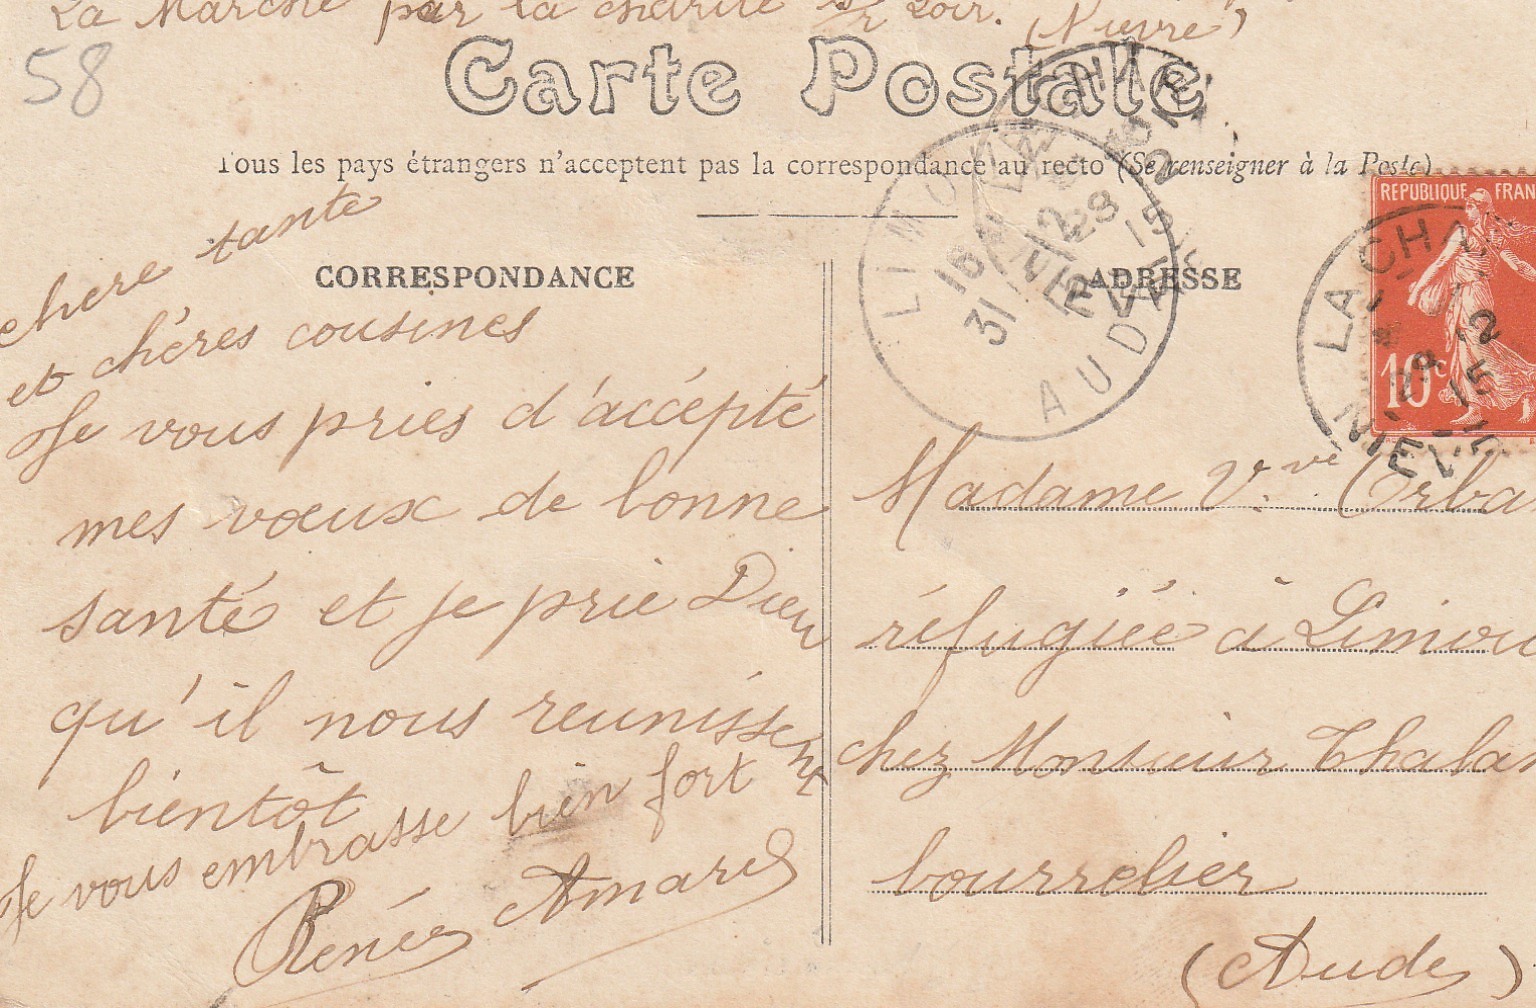 La Marche par la charité s/r Loir. (Nièvre)
58
Carte Postale
Tous les pays étrangers n'acceptent pas la correspondance au recto (Se renseigner à la Poste)
CORRESPONDANCE
chere tante
et chères cousines
Je vous pries d'accépté
mes vœux de bonne
santé et je prie Dieu
qu'il nous reunissent
bientôt
Je vous embrasse bien fort
Renée Amard
ADRESSE
LIMOUX
16
31 12
AUDE
LA CHA
29 12
15
NIEVRE
REPUBLIQUE FRAN
10c
Madame Vve Orba
réfugiée à Limou
chez Monsieur Thala
bourrelier
(Aude)